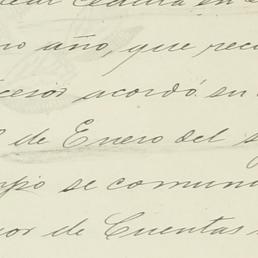 cédula en
mo año, que rec
ceros acordó en
de Enero del s
mpo se comuni
or de Cuentas